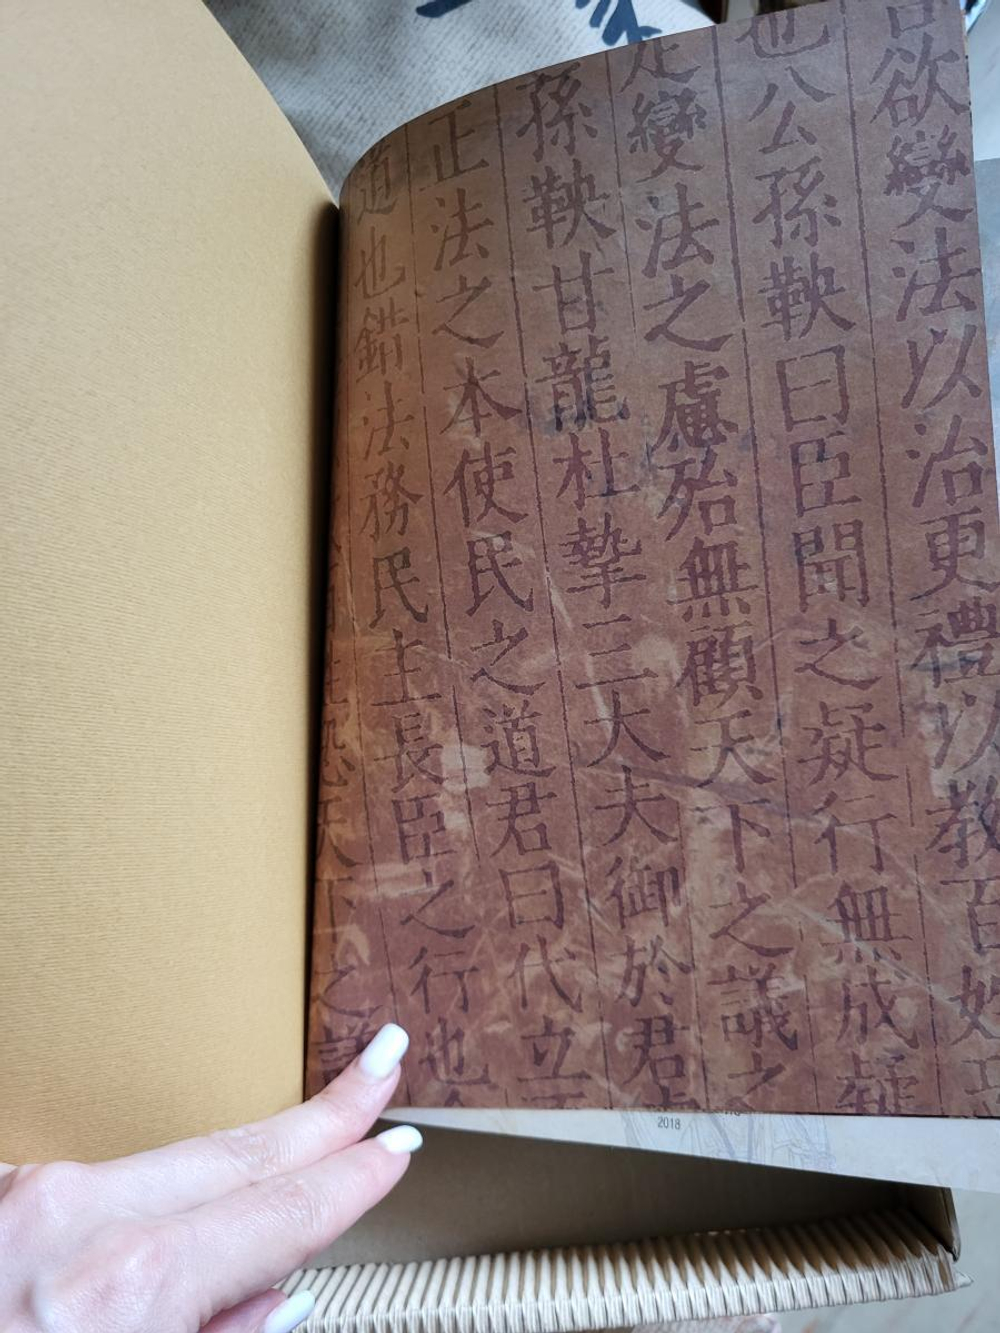 吾欲變法以治更禮以教百姓恐
也公孫鞅曰臣聞之疑行無成疑
定變法之慮殆無顧天下之議之
孫鞅甘龍杜摯三大夫御於君
正法之本使民之道君曰代立不
道也錯法務民主長臣之行也今
恐天下之議
2018